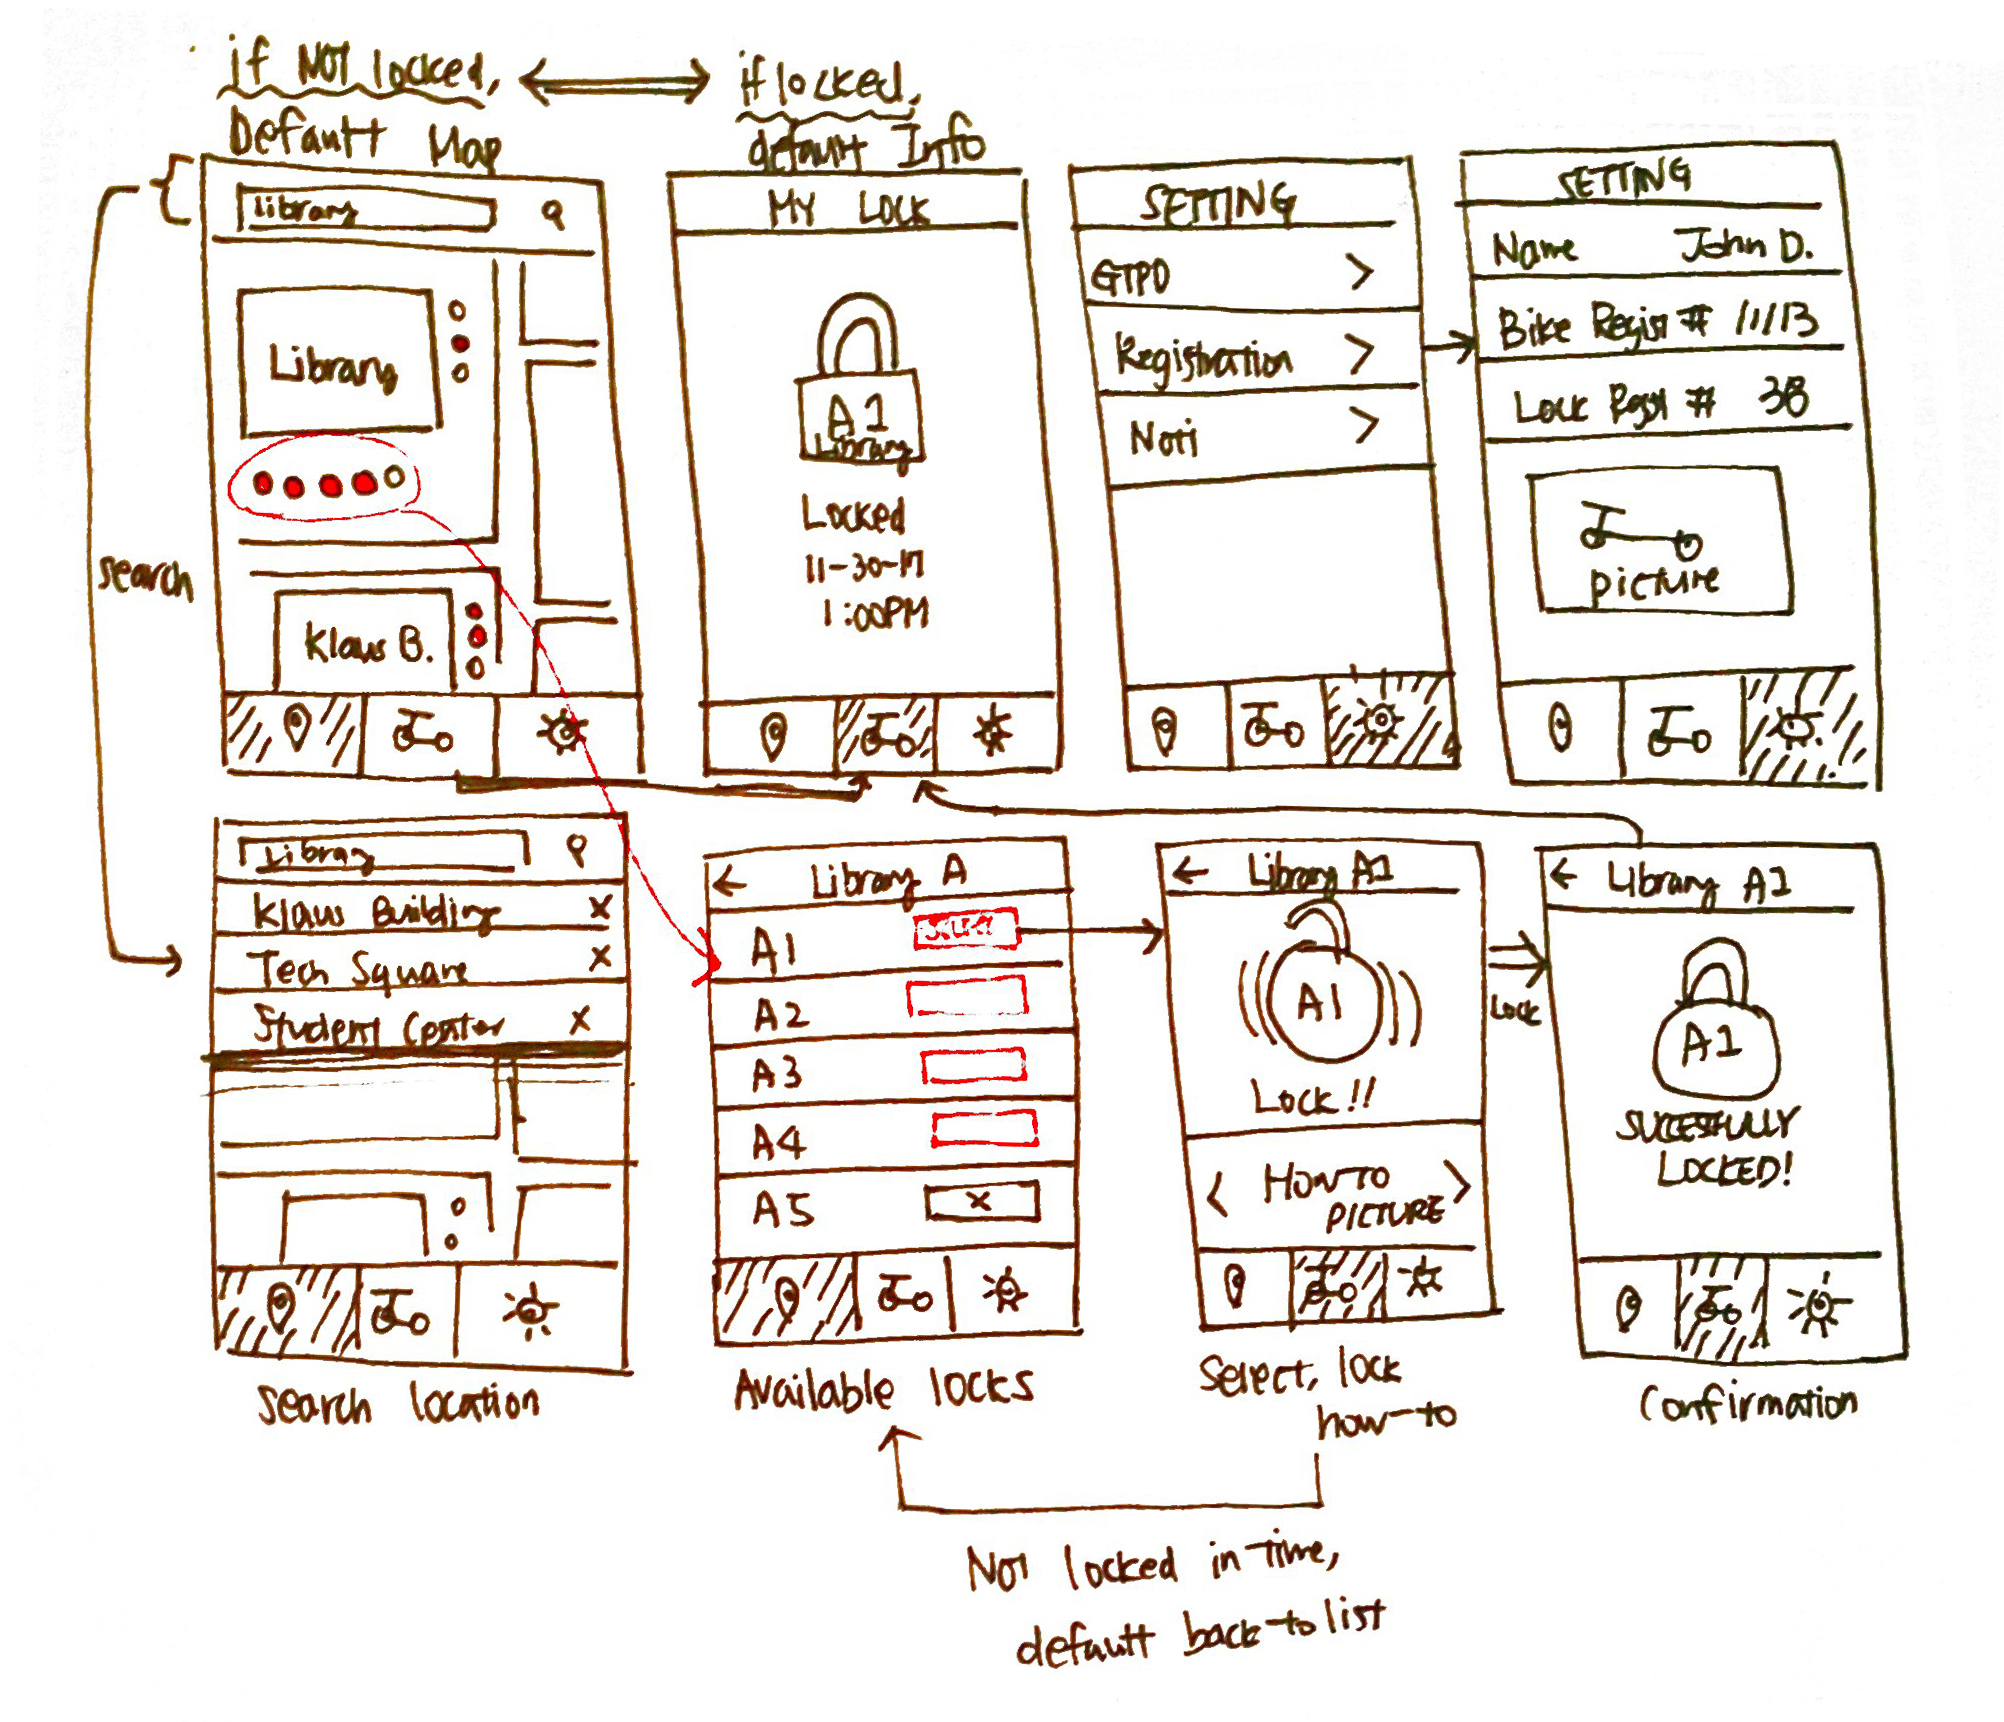 if NOT locked,
Default Map
if locked,
default Info
library
Library
Klaus B.
search
MY LOCK
A1
Library
Locked
11-30-17
1:00PM
SETTING
GTPD
Registration
Noti
SETTING
Name John D.
Bike Regist # 11113
Lock Regst # 38
picture
Library
Klaus Building x
Tech Square x
Student Center x
search location
← Library A
A1 select
A2
A3
A4
A5 x
Available locks
← Library A1
A1
Lock!!
< HOW TO >
PICTURE
Select, lock
how-to
Lock
← Library A1
A1
SUCCESFULLY
LOCKED!
Confirmation
Not locked in time,
default back to list